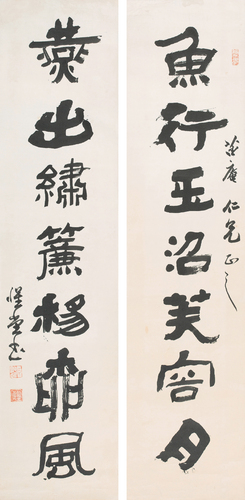 魚行玉沼芙容月
庵仁兄正之
燕出繡簾楊柳風
堂書